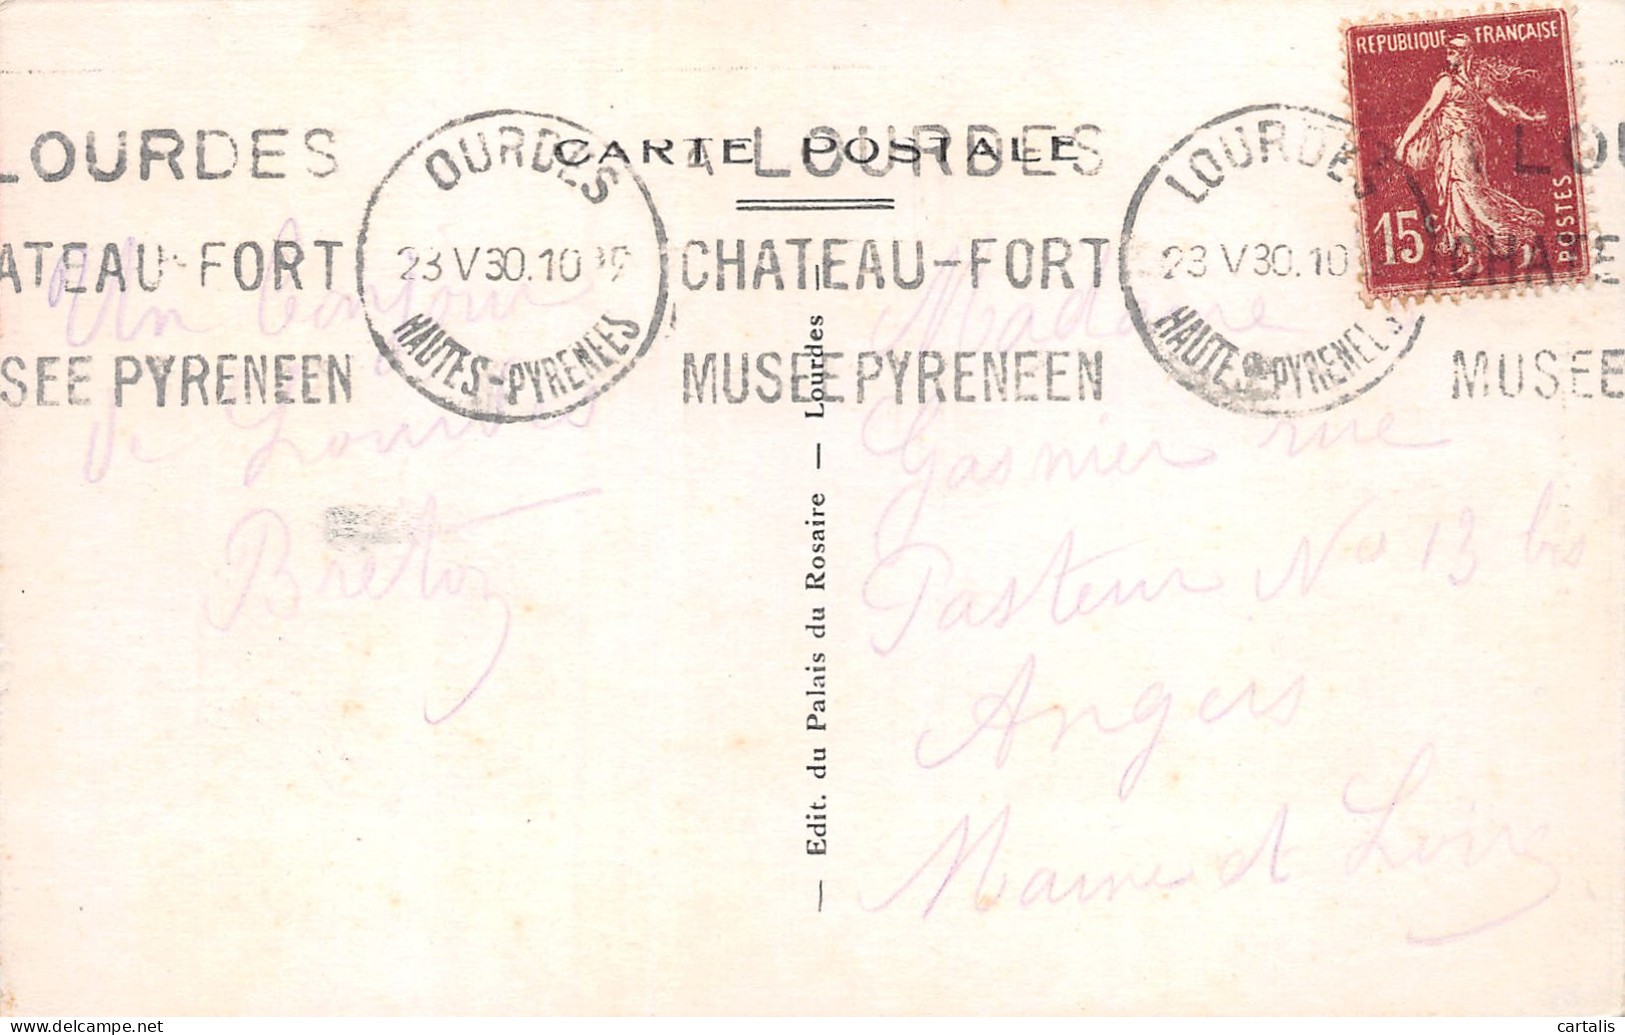 RÉPUBLIQUE FRANÇAISE
15c
POSTES
CARTE POSTALE
LOURDES
ATEAU-FORT
SEE PYRENEEN
OURDES
23 V 30. 10
HAUTES-PYRENEES
A LOURDES
CHATEAU-FORT
MUSEE PYRENEEN
LOURDES
23 V 30. 10
HAUTES-PYRENEES
LOU
CHATE
MUSEE
Un bonjour
de Lourdes
Breton
— Edit. du Palais du Rosaire — Lourdes —
Madame
Gasnier rue
Pasteur No 13 bis
Angers
Maine et Loire
cartalis